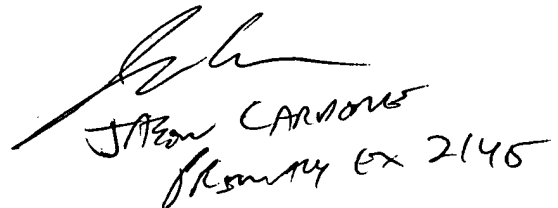 JASON CARDONE
PRIMARY EX 2145